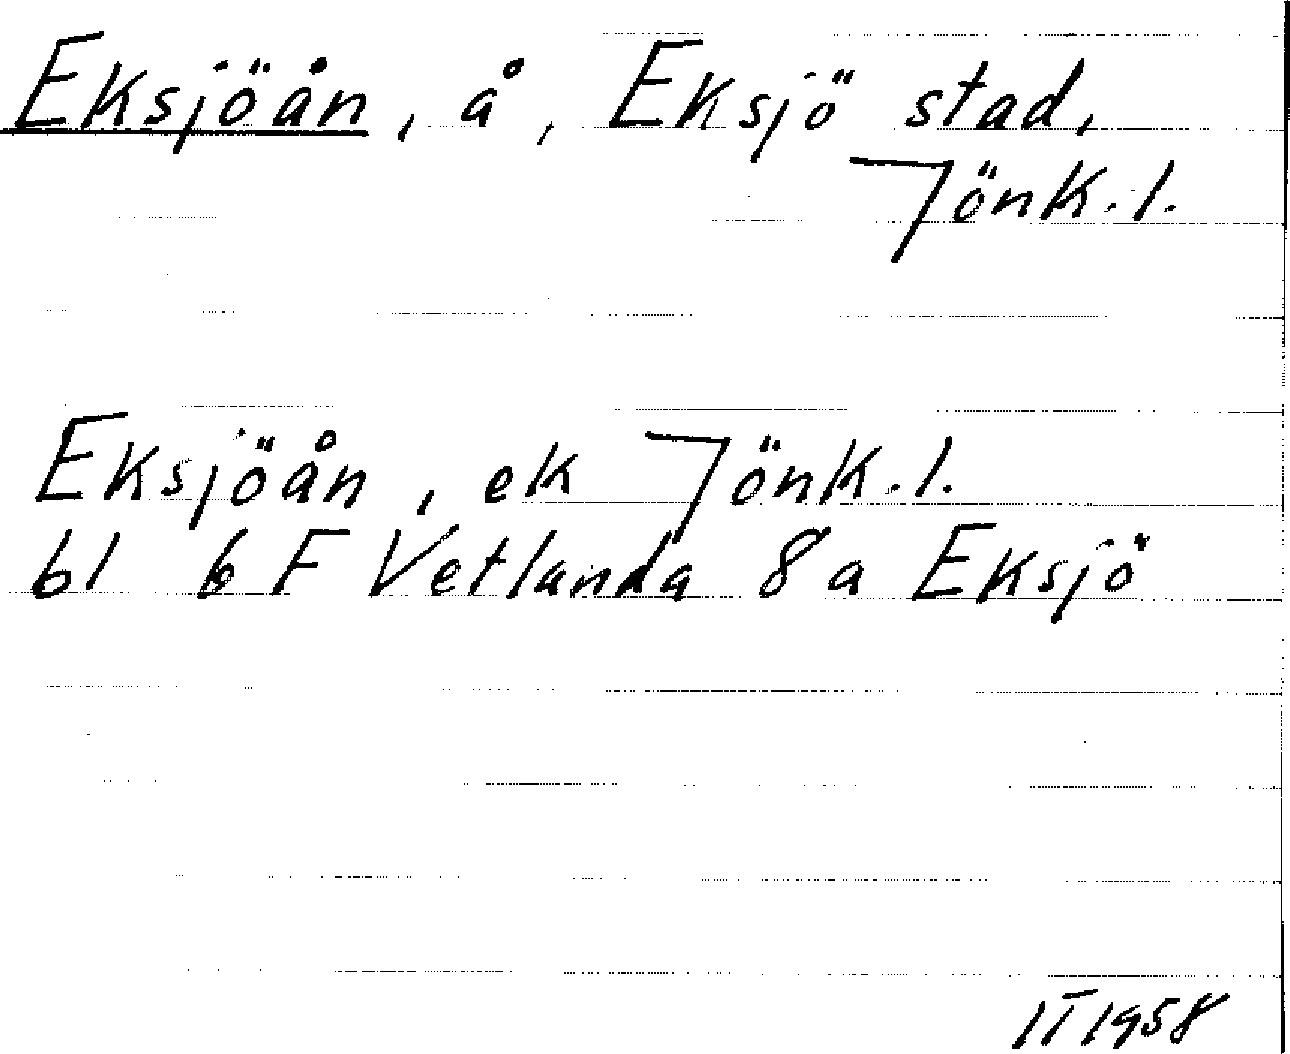 Eksjöån, å, Eksjö stad,
Jönk.l.
Eksjöån, ek Jönk.l.
bl 6 F Vetlanda 8a Eksjö
IT 1958